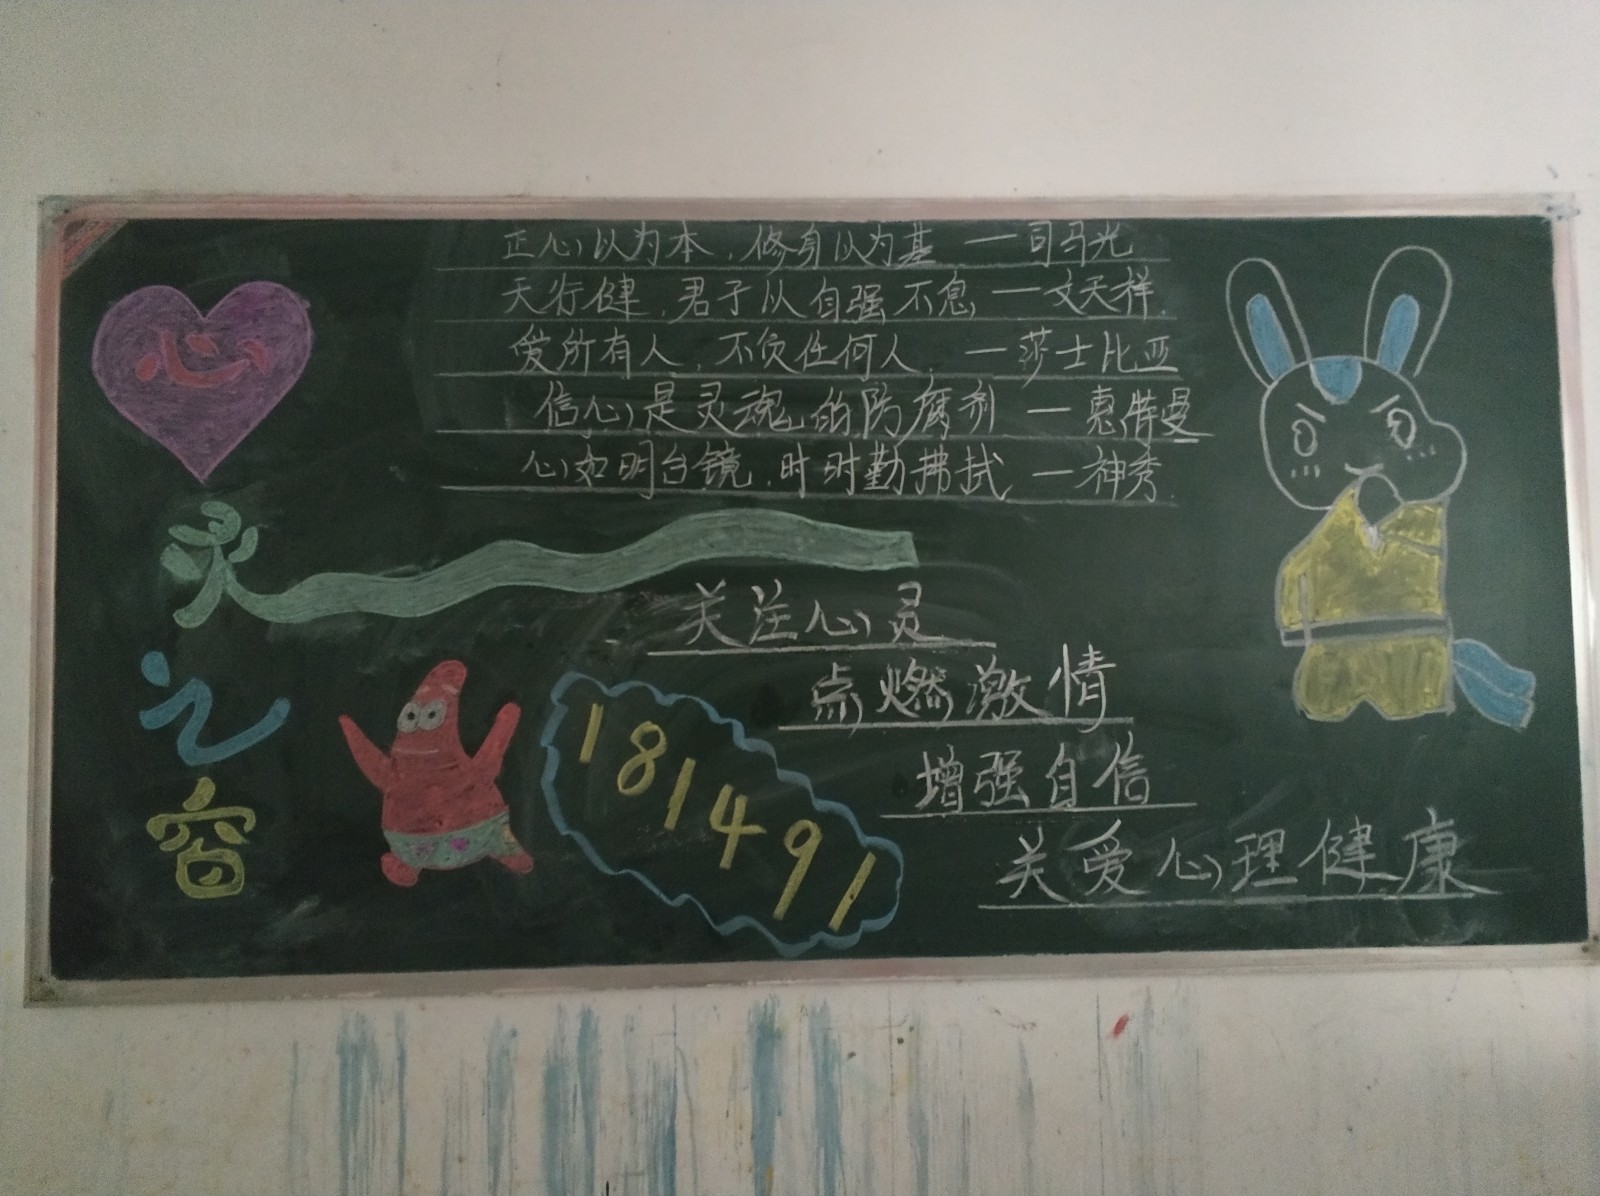 正心以为本，修身以为基 —司马光
天行健，君子以自强不息 —文天祥.
爱所有人，不负任何人. —莎士比亚
信心是灵魂的防腐剂 — 惠特曼
心如明台镜，时时勤拂拭 —神秀.
心
灵
之
窗
关注心灵
点燃激情
增强自信
关爱心理健康
181491